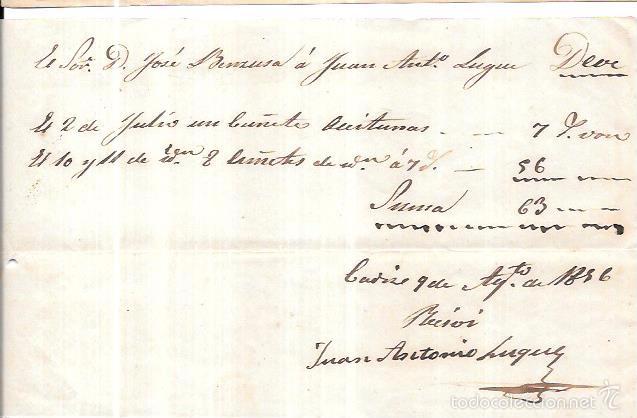 El Sor. D. José Benzusa á Juan Anto. Luque Deve
El 2 de Julio un cuñete Aceitunas 7 von
El 10 y 11 de id. 8 cuñetes de idn á 7 56
Suma 63
Cadiz 9 de Agto. de 1856
Recivi
Juan Antonio Luque
todocoleccion.net